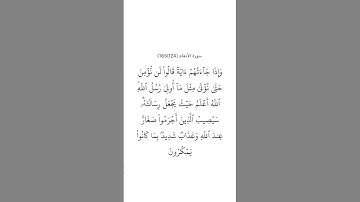 سورة الأنعام (124\165)
وَإِذَا جَآءَتۡهُمۡ ءَايَةٞ قَالُواْ لَن نُّؤۡمِنَ
حَتَّىٰ نُؤۡتَىٰ مِثۡلَ مَآ أُوتِيَ رُسُلُ ٱللَّهِۘ
ٱللَّهُ أَعۡلَمُ حَيۡثُ يَجۡعَلُ رِسَالَتَهُۥۗ
سَيُصِيبُ ٱلَّذِينَ أَجۡرَمُواْ صَغَارٌ
عِندَ ٱللَّهِ وَعَذَابٞ شَدِيدُۢ بِمَا كَانُواْ
يَمۡكُرُونَ